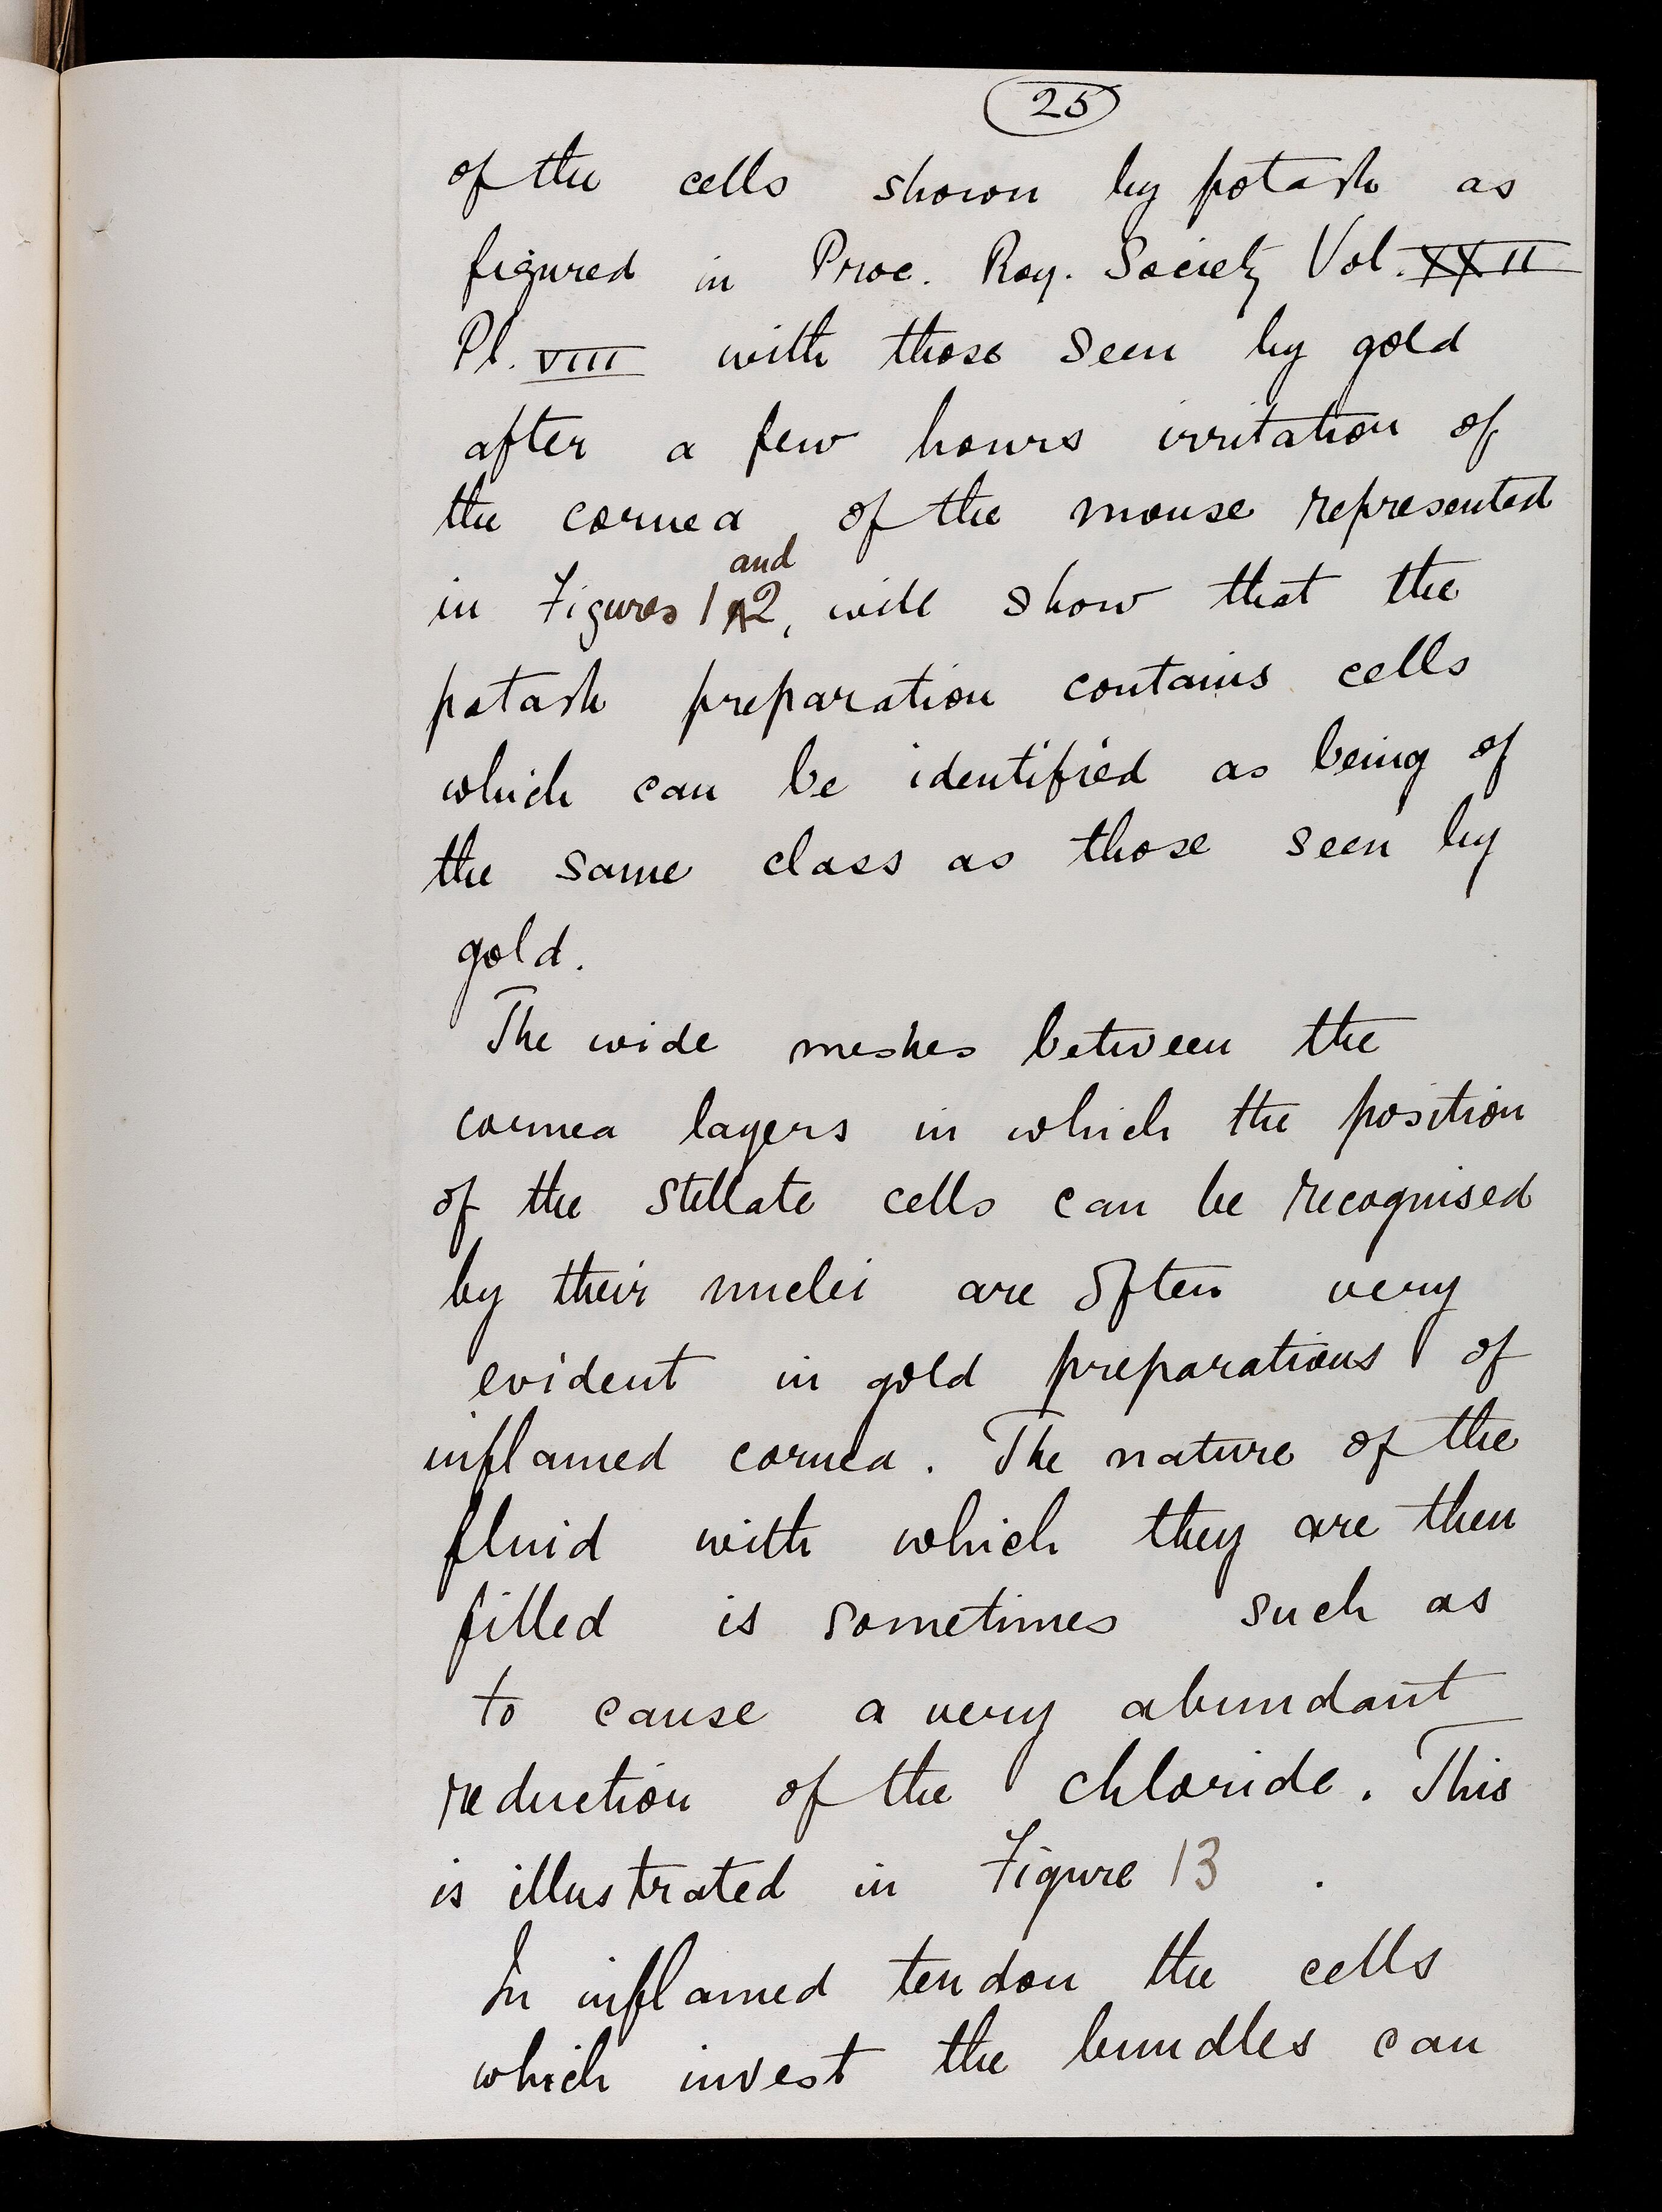 25
of the cells shown by potash as
figured in Proc. Roy. Society Vol. XXII
Pl. VIII with those seen by gold
after a few hours irritation of
the cornea of the mouse represented
and
in Figures 1 2, will show that the
potash preparation contains cells
which can be identified as being of
the same class as those seen by
gold.
The wide meshes between the
cornea layers in which the position
of the stellate cells can be recognised
by their nuclei are often very
evident in gold preparations of
inflamed cornea. The nature of the
fluid with which they are then
filled is sometimes such as
to cause a very abundant
reduction of the chloride. This
is illustrated in Figure 13 .
In inflamed tendon the cells
which invest the bundles can